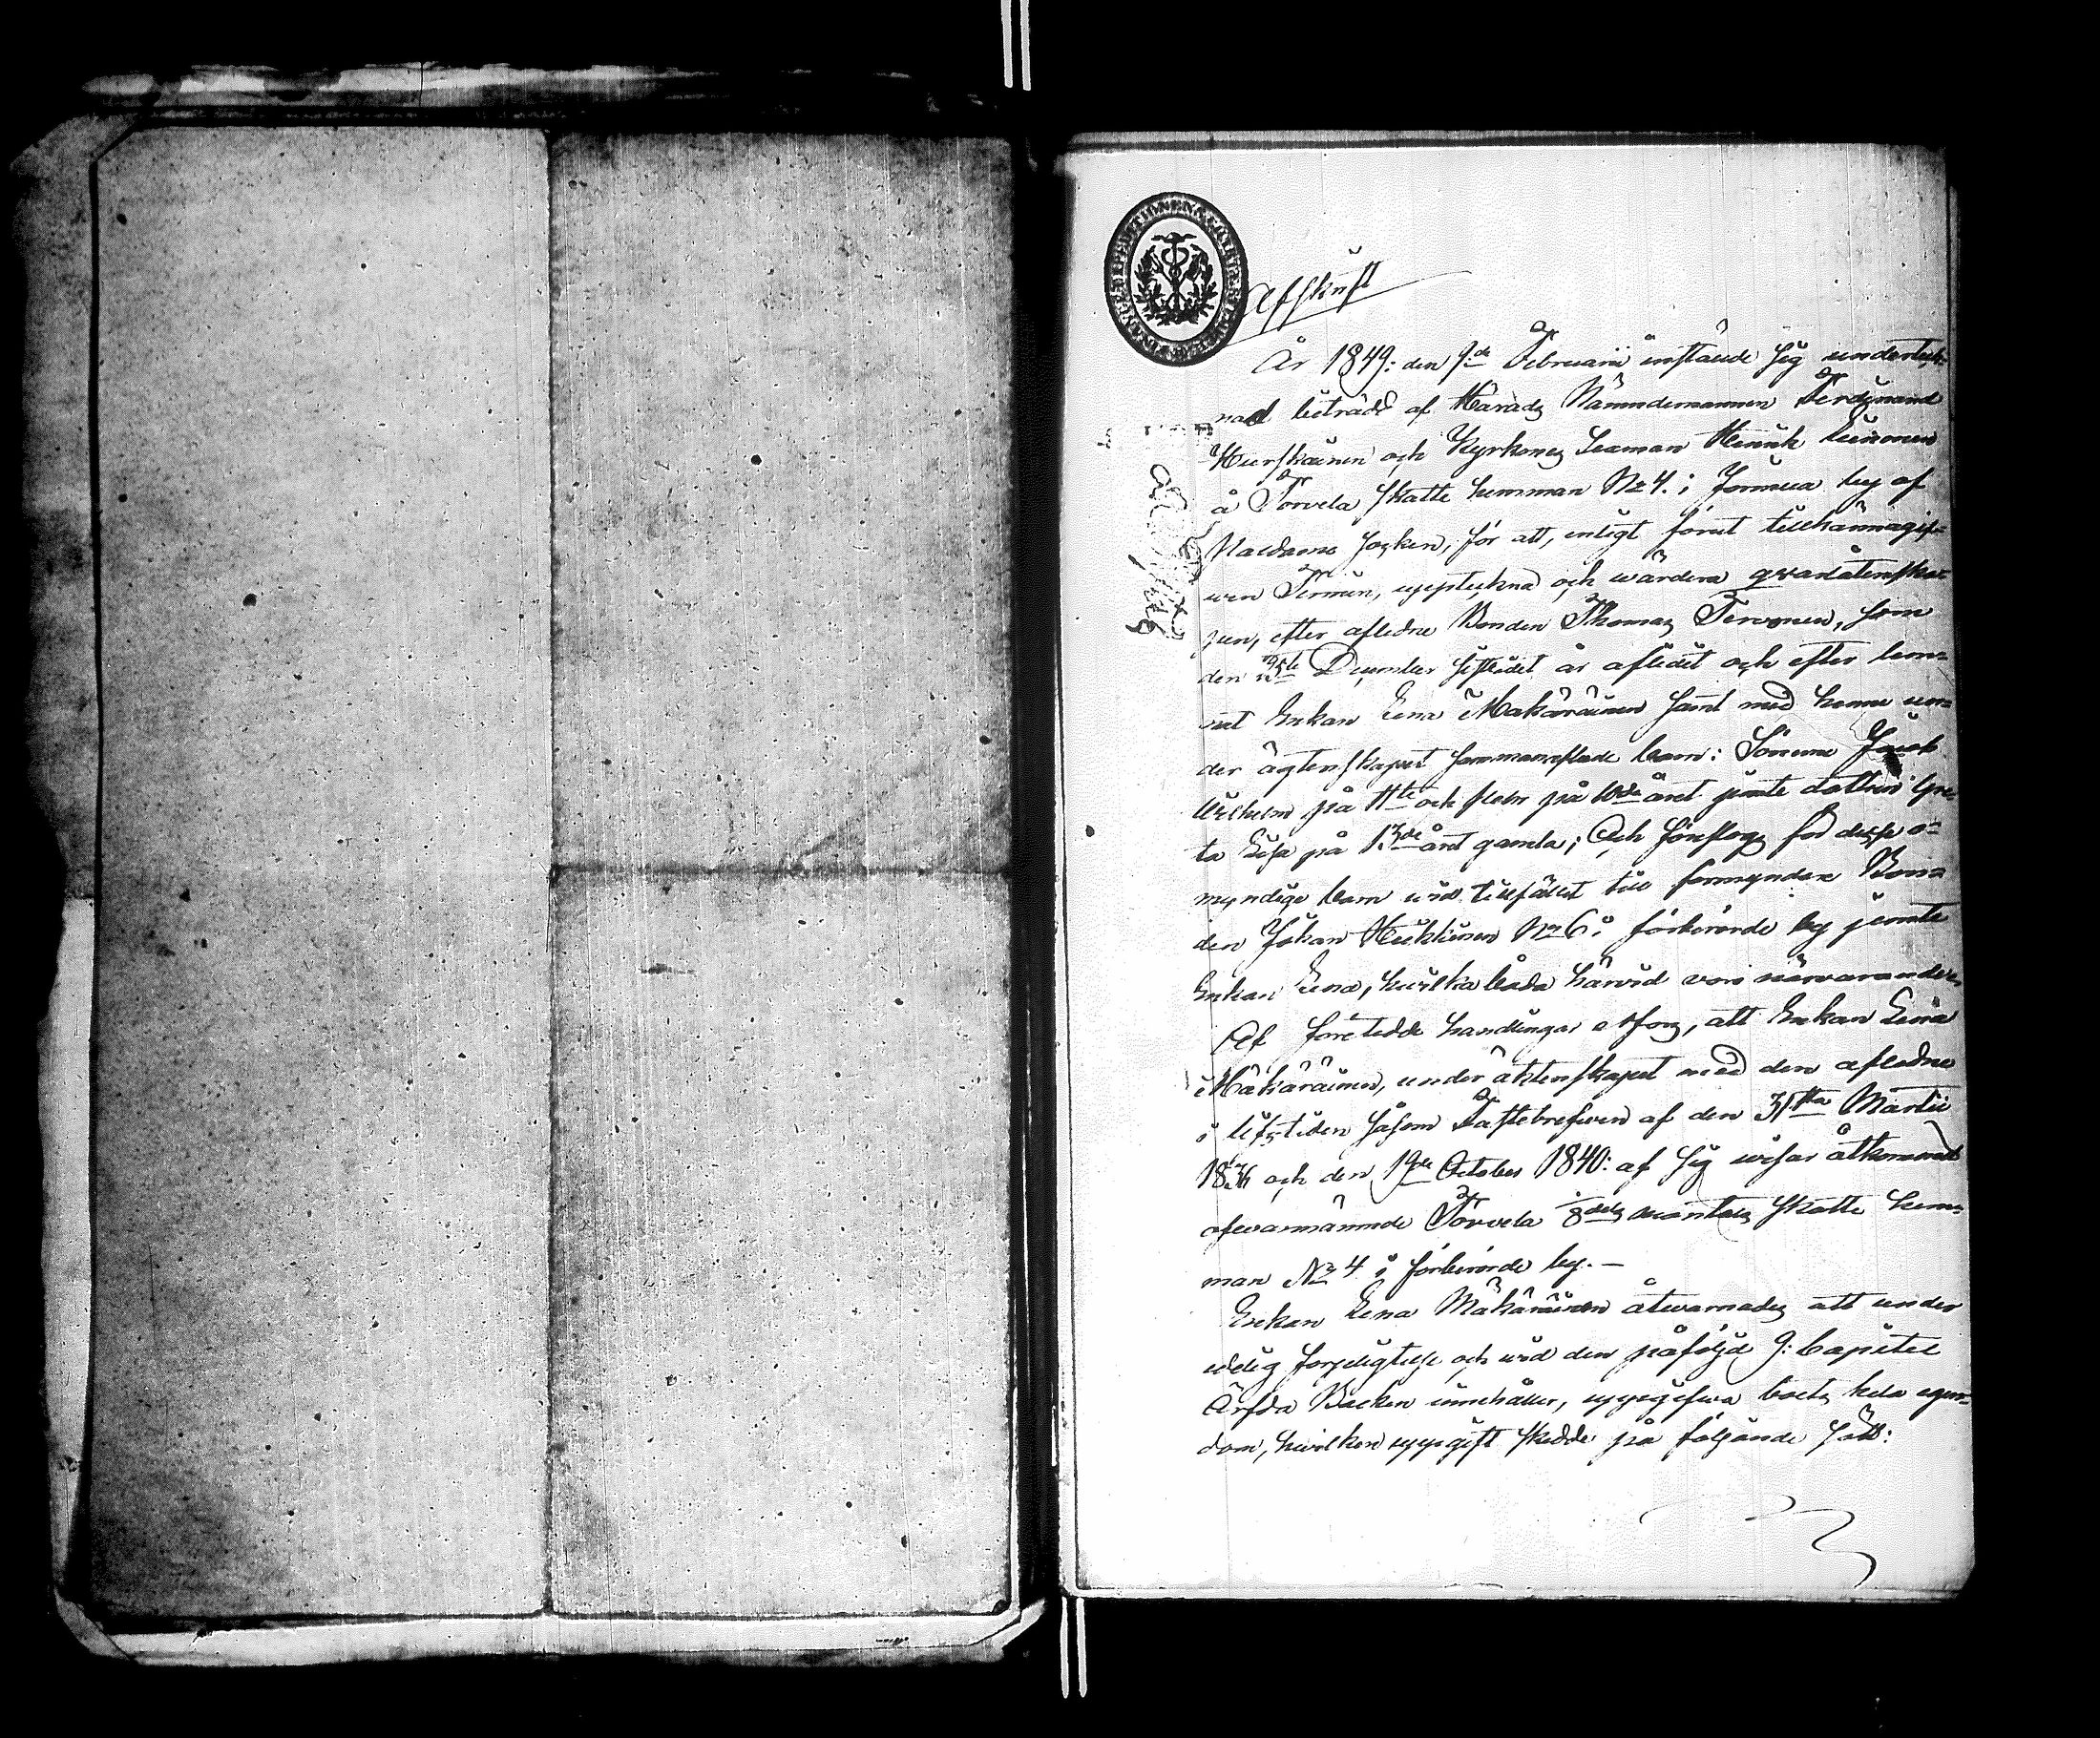 Afskrift
År 1849: den 9:de Februarii instälde sig undertek-
nad biträdd af Härads Nämndemannen Ferdinand
Hurskainen och Kyrkones Leaman Henrik Leinonen
å Torvela skatte hemman No 4. i Jormua by af
Paldamo socken, för att, enligt förut tillkännagif-
ven Termin, uppteckna och värdera qvarlåtenska-
pen, efter aflidne Bonden Thomas Tervonen, som
den December sistledit år aflidit och efter lem-
nat Enkan Lena Mäkäräinen samt med henne un-
der ägtenskapet sammanaflade barn: Sönerne Jacob
Wilhelm på 11te och på 10de året jemte dottren Gre-
ta Lisa på 13de året gamla; Och föreslogs för desse o-
myndige barn vid tillfället till formyndare Bon-
den Johan Heikkinen No 6 i förberörde by jemte
Enkan Lena, hvilka båda härvid voro närvarande,
Af företedde handlingar erfors, att Enkan Lena
Mäkäräinen, under äktenskapet med den aflednes
i lifstiden såsom Fastebrefven af den 31sta Martii
1836 och den 19de October 1840: af sig visar åtkommit
ofvannämnde Torvela 8dels mantals skatte hem-
man No 4 i förberörde by.—
Enkan Lena Mäkäräinen åtvarnades att under
edelig förpligtelse och vid den påföljd 9: Capitel
Ärfda Balken innehåller, uppgifva boets hela egen-
dom, hvilken uppgift skedde på följande sätt: